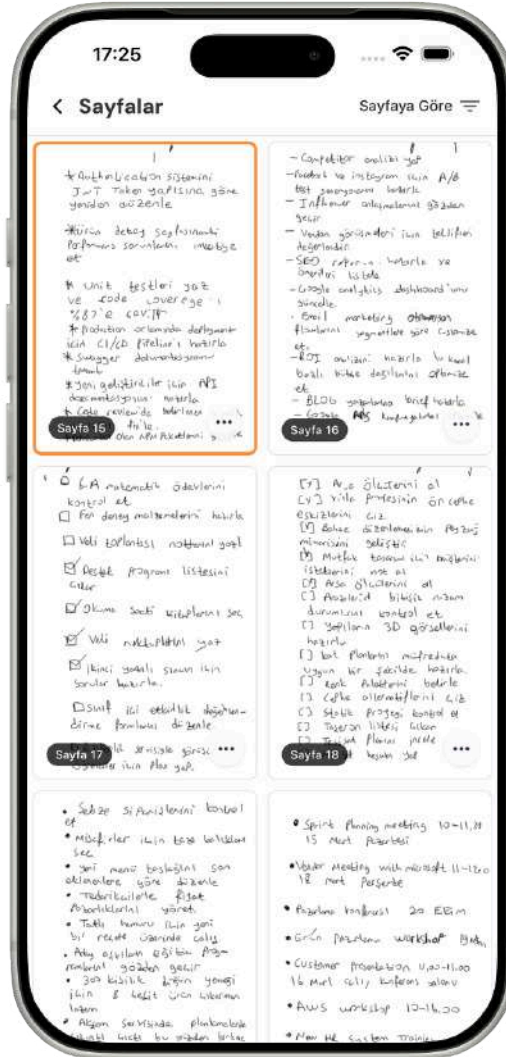 17:25
Sayfalar
Sayfaya Göre
* Authentication sistemini
JWT Token yapısına göre
yeniden düzenle
*Ürün detay sayfasındaki
Performans sorunlarını
et
* Unit testleri yaz
ve code coverage'ı
%87'e
* Production ortamında deployment
için CI/CD Pipeline'ı hazırla
* Swagger dokümantasyonunu
* Yeni geliştiriciler için API
dokümantasyonu hazırla
* Code review'de belirlenen
Sayfa 15
- Competitor analizi yap
- Facebook ve instagram için A/B
test senaryolarını hazırla
- Influencer anlaşmalarını gözden
geçir
- Vendor görüşmeleri için teklifleri
değerlendir
- SEO raporunu hazırla ve
önerileri listele
- Google analytics dashboard'unu
güncelle
- Email marketing otomasyon
segmentlere göre customize
et.
- ROI analizini hazırla ve kanal
bazlı bütçe dağılımını optimize
et
- BLOG yazılarına brief hazırla
- Google Ads
Sayfa 16
6-A matematik ödevlerini
kontrol et
Fen deney malzemelerini hazırla
Veli toplantısı notlarını yaz
Destek programı listesini
çıkar
Okuma saati kitaplarını seç
Veli mektuplarını yaz
İkinci yazılı sınav için
sorular hazırla.
Sınıf içi etkinlik değerlen-
dirme formlarını düzenle
Sayfa 17
için Plan yap.
Arsa ölçülerini al
[v] Villa Projesinin ön cephe
eskizlerini çiz
Bahçe düzenlemesi için Peyzaj
mimarisini geliştir
Mutfak tasarımı için müşterinin
isteklerini not al
Arsa ölçülerini al
[ ] Arazilerin bitişik nizam
durumunu kontrol et
[ ] Yapıların 3D görsellerini
hazırla
[ ] Kat Planlarını müfredata
uygun bir şekilde hazırla.
[ ] Renk Paletlerini belirle
[ ] Cephe alternatiflerini çiz
[ ] Statik Projeyi kontrol et
[ ] Taşeron listesi çıkar
[ ] Tesisat Planını incele
Sayfa 18
hesabı yap
• Sebze siparişlerini kontrol
et
• Misafirler için taze balıkları
seç
• Yeni menü taslağını son
eklemelere göre düzenle
• Tedarikçilerle fiyat
Pazarlıklarını yönet
• Tatlı hamuru için yeni
bir reçete üzerinde çalış
• Aday aşçıların eğitim Prog-
ramlarını gözden geçir
• 300 kişilik düğün yemeği
için 8 çeşit ürün çıkarman
lazım
• Akşam Servisinde
• Sprint Planning meeting 10-11.
15 Mart Pazartesi
• Vendor Meeting with microsoft 11-12.00
18 mart Perşembe
• Pazarlama konferansı 20 Ekim
• Ürün Pazarlama workshop
• Customer Presentation
16 Mart Salı, konferans salonu
• AWS workshop 10-16.00
• New HR System Training